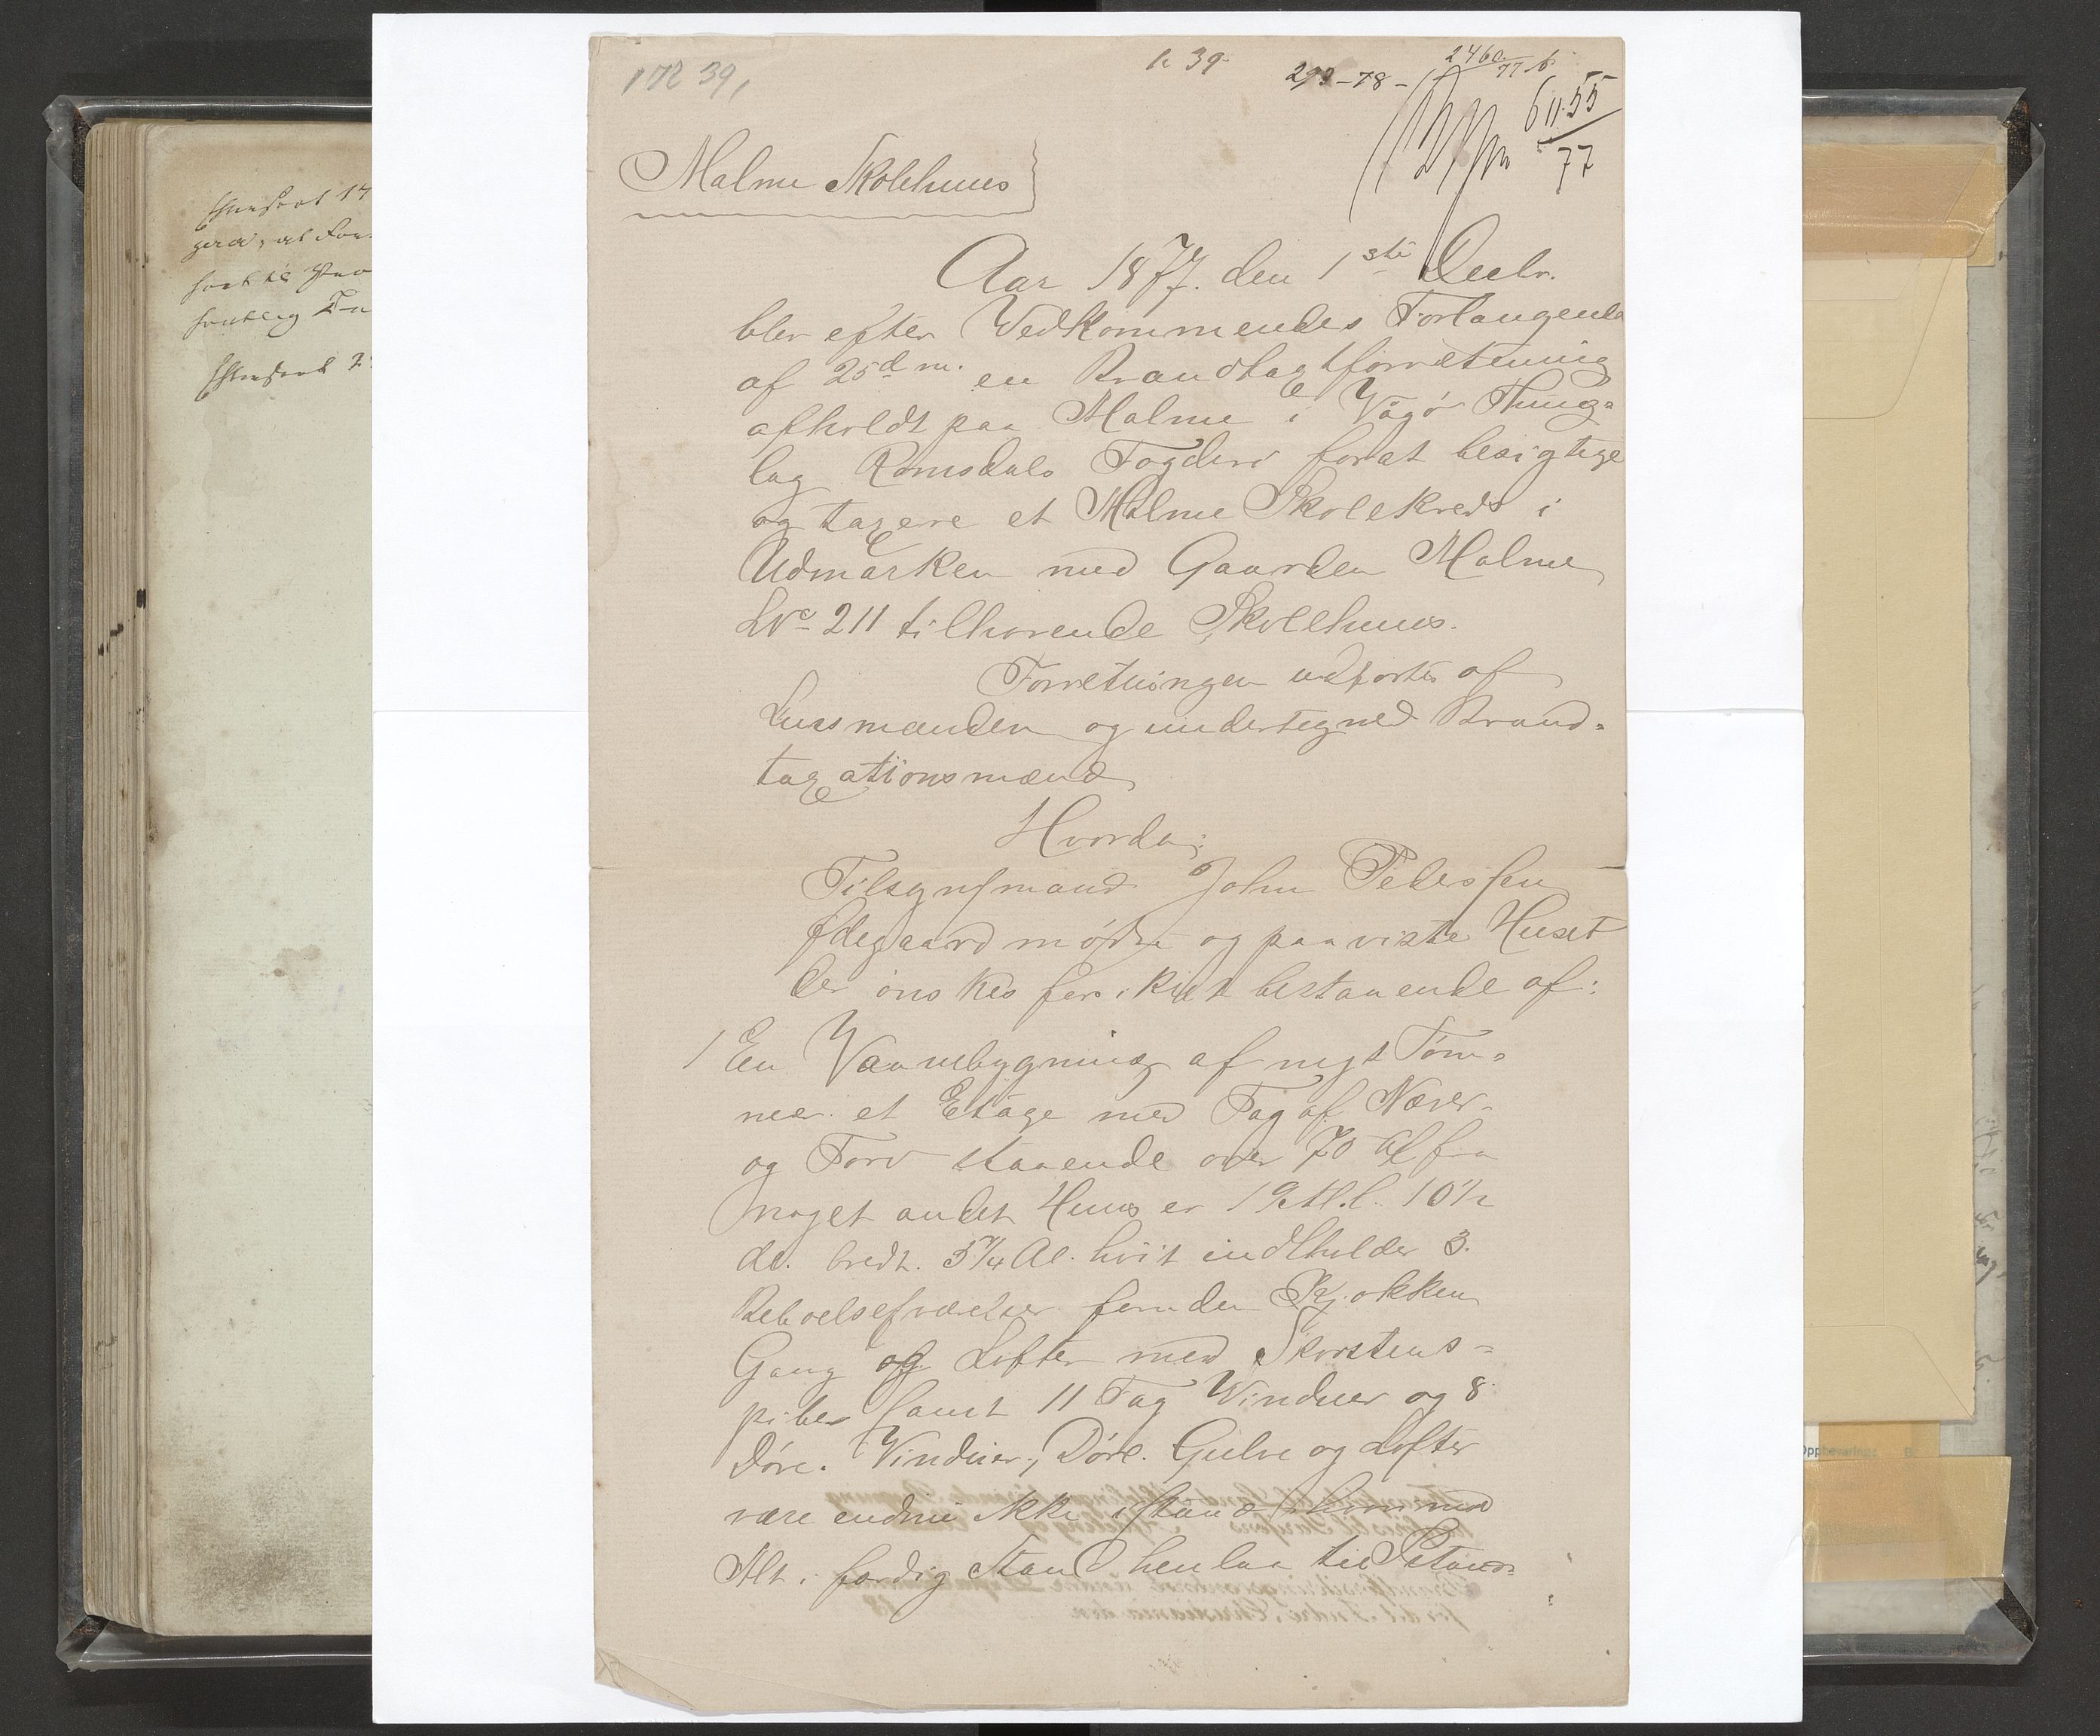 172 39,
h 39.
293-78-
2460/77 b.
611.55/77
Malme Skolehuus
Aar 1877. den 1ste Decbr.
blev efter Vedkommendes Forlangende
af 25 d. m. en Brandtaxtforretning
afholdt paa Malme i Vågø Thing-
lag Romsdals Fogderi forat besigtige
og taxere et Malme Skolekreds i
Udmarken med Gaarden Malme
LNo 211 tilhørende Skolehuus.
Forretningen udførtes af
Lensmanden og undertegned Brand-
taxationsmænd
Hvorda:
Tilsynsmand John Pedersen
Ødegaard mødte og paaviste Huset
der ønskes forsikret bestaaende af:
1 En Vaanebygning af nyt Tøm-
mer et Etage med Tag af Næver
og Torv staaende over 70 Al fra
noget andet Huus er 19 Al. l. 10 1/2
Al. bredt. 5 1/4 Al. høit indholder 3.
Beboelsesværelser foruden Kjøkken
Gang og Lofter med Skorstens-
piber samt 11 Fag Vinduer og 8
Døre. Vinduer, Døre. Gulve og Lofter
være endnu ikke istand hvormed
Alt i færdig Stand henlaa til Istand-
Oppbevarings